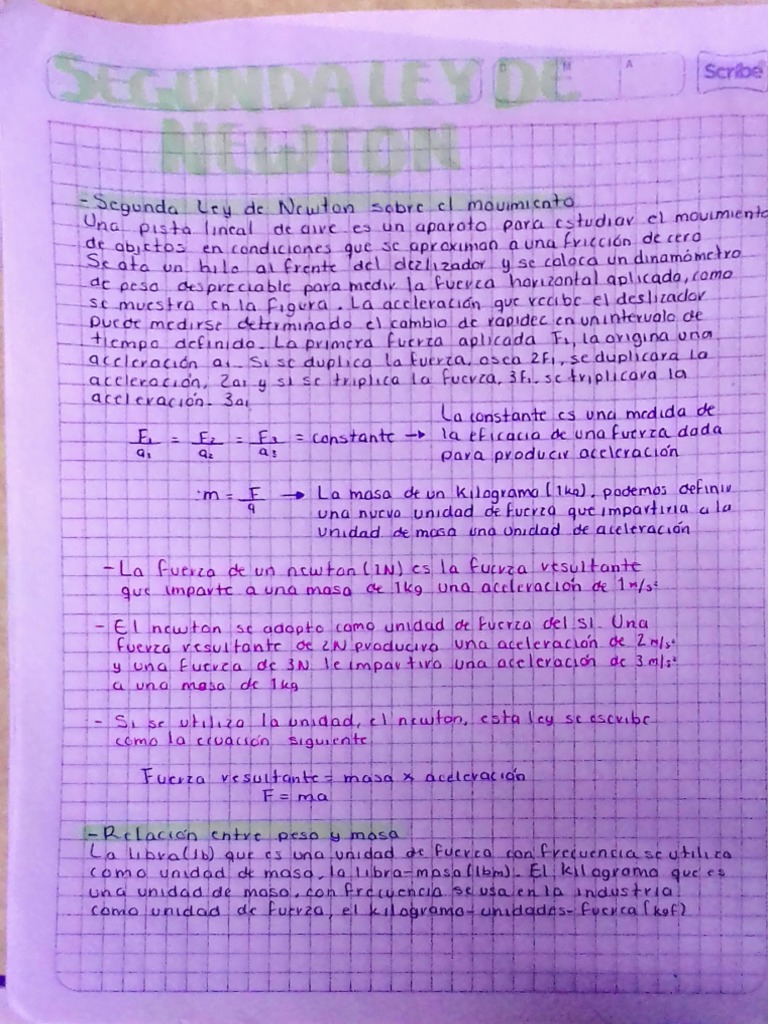 D M A Scribe
SEGUNDA LEY DE
NEWTON
- Segunda Ley de Newton sobre el movimiento
Una pista lineal de aire es un aparato para estudiar el movimiento
de objetos en condiciones que se aproximan a una fricción de cero
Se ata un hilo al frente del dezlizador y se coloca un dinamómetro
de peso despreciable para medir la fuerza horizontal aplicada, como
se muestra en la figura. La aceleración que recibe el deslizador
puede medirse determinado el cambio de rapidec en un intervalo de
tiempo definido. La primera fuerza aplicada F₁, la origina una
aceleración a₁. Si se duplica la fuerza, osea 2F₁, se duplicara la
aceleración, 2a₁ y si se triplica la fuerza, 3F₁. se triplicara la
aceleración. 3a₁
F₁/a₁ = F₂/a₂ = F₃/a₃ = constante → La constante es una medida de
la eficacia de una fuerza dada
para producir aceleración
m = F/a → La masa de un kilogramo (1kg), podemos definir
una nueva unidad de fuerza que impartiria a la
unidad de masa una unidad de aceleración
- La fuerza de un newton (1N) es la fuerza resultante
que imparte a una masa de 1kg una aceleración de 1m/s²
- El newton se adopto como unidad de fuerza del SI. Una
fuerza resultante de 2N producira una aceleración de 2m/s²
y una fuerza de 3N le impartira una aceleración de 3m/s²
a una masa de 1kg
- Si se utiliza la unidad, el newton, esta ley se escribe
como la ecuación siguiente
Fuerza resultante = masa × aceleración
F = ma
- Relación entre peso y masa
La libra (lb) que es una unidad de fuerza con frecuencia se utiliza
como unidad de masa, la libra-masa (lbm). El kilogramo que es
una unidad de masa, con frecuencia se usa en la industria
como unidad de fuerza, el kilogramo-unidades-fuerza (kgf)